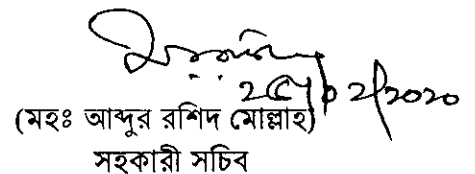 ২৫/০২/২০২০
(মহঃ আব্দুর রশিদ মোল্লাহ)
সহকারী সচিব